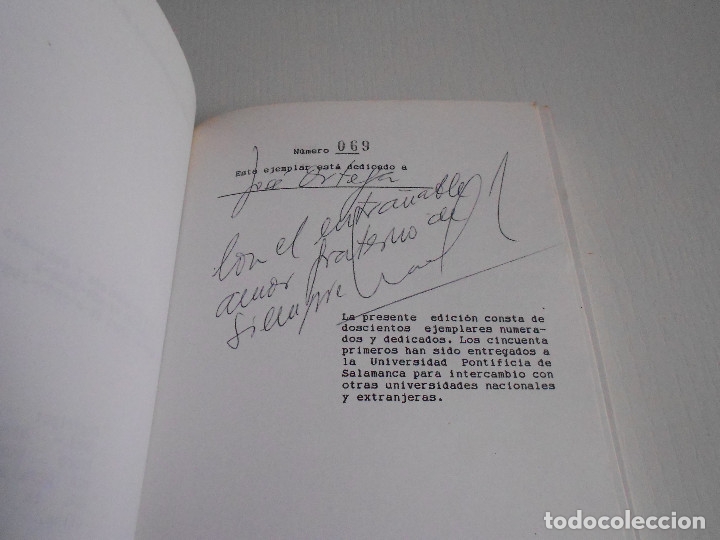 Número 069
Este ejemplar está dedicado a
José Ortega
Con el entrañable
amor fraterno de
siempre
La presente edición consta de
doscientos ejemplares numera-
dos y dedicados. Los cincuenta
primeros han sido entregados a
la Universidad Pontificia de
Salamanca para intercambio con
otras universidades nacionales
y extranjeras.
todocoleccion